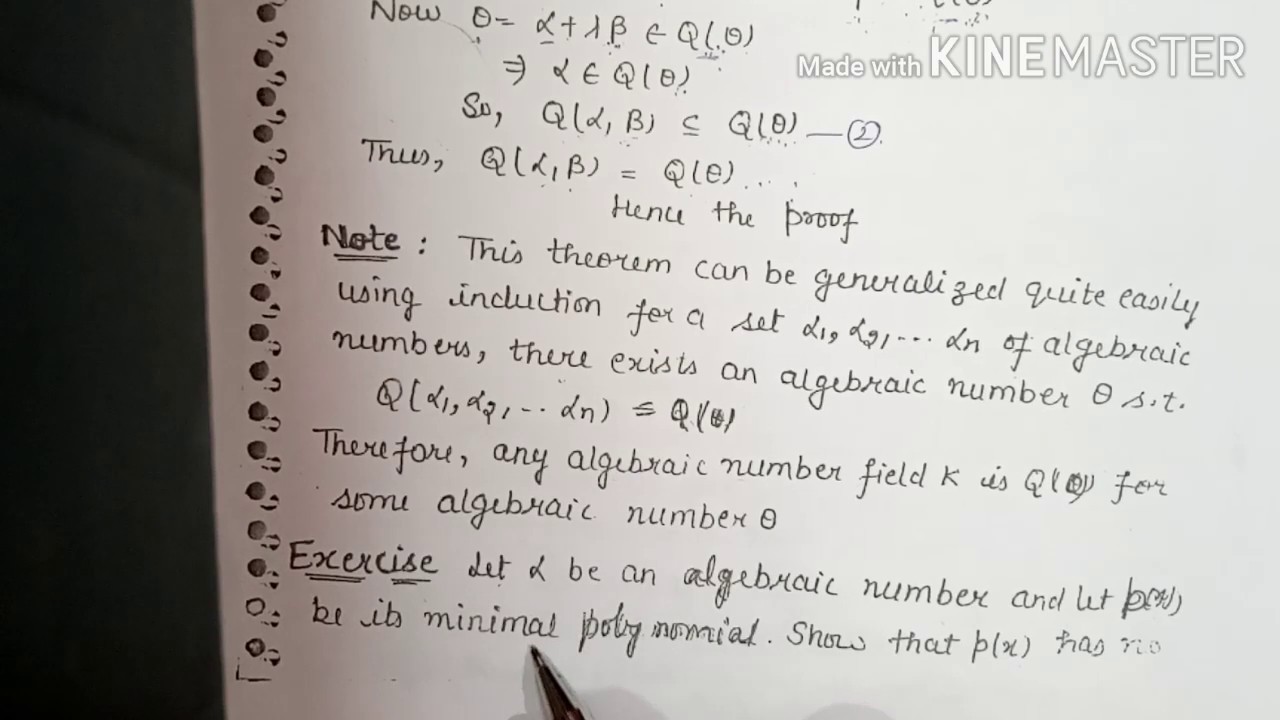 Now θ = α + λβ ∈ Q(θ)
Made with KINEMASTER
⇒ α ∈ Q(θ)
So, Q(α, β) ⊆ Q(θ) — ②.
Thus, Q(α, β) = Q(θ)....
Hence the proof
Note : This theorem can be generalized quite easily
using induction for a set α1, α2, ... αn of algebraic
numbers, there exists an algebraic number θ s.t.
Q(α1, α2, ... αn) = Q(θ)
Therefore, any algebraic number field K is Q(θ) for
some algebraic number θ
Exercise Let α be an algebraic number and let p(x)
be its minimal polynomial. Show that p(x) has no